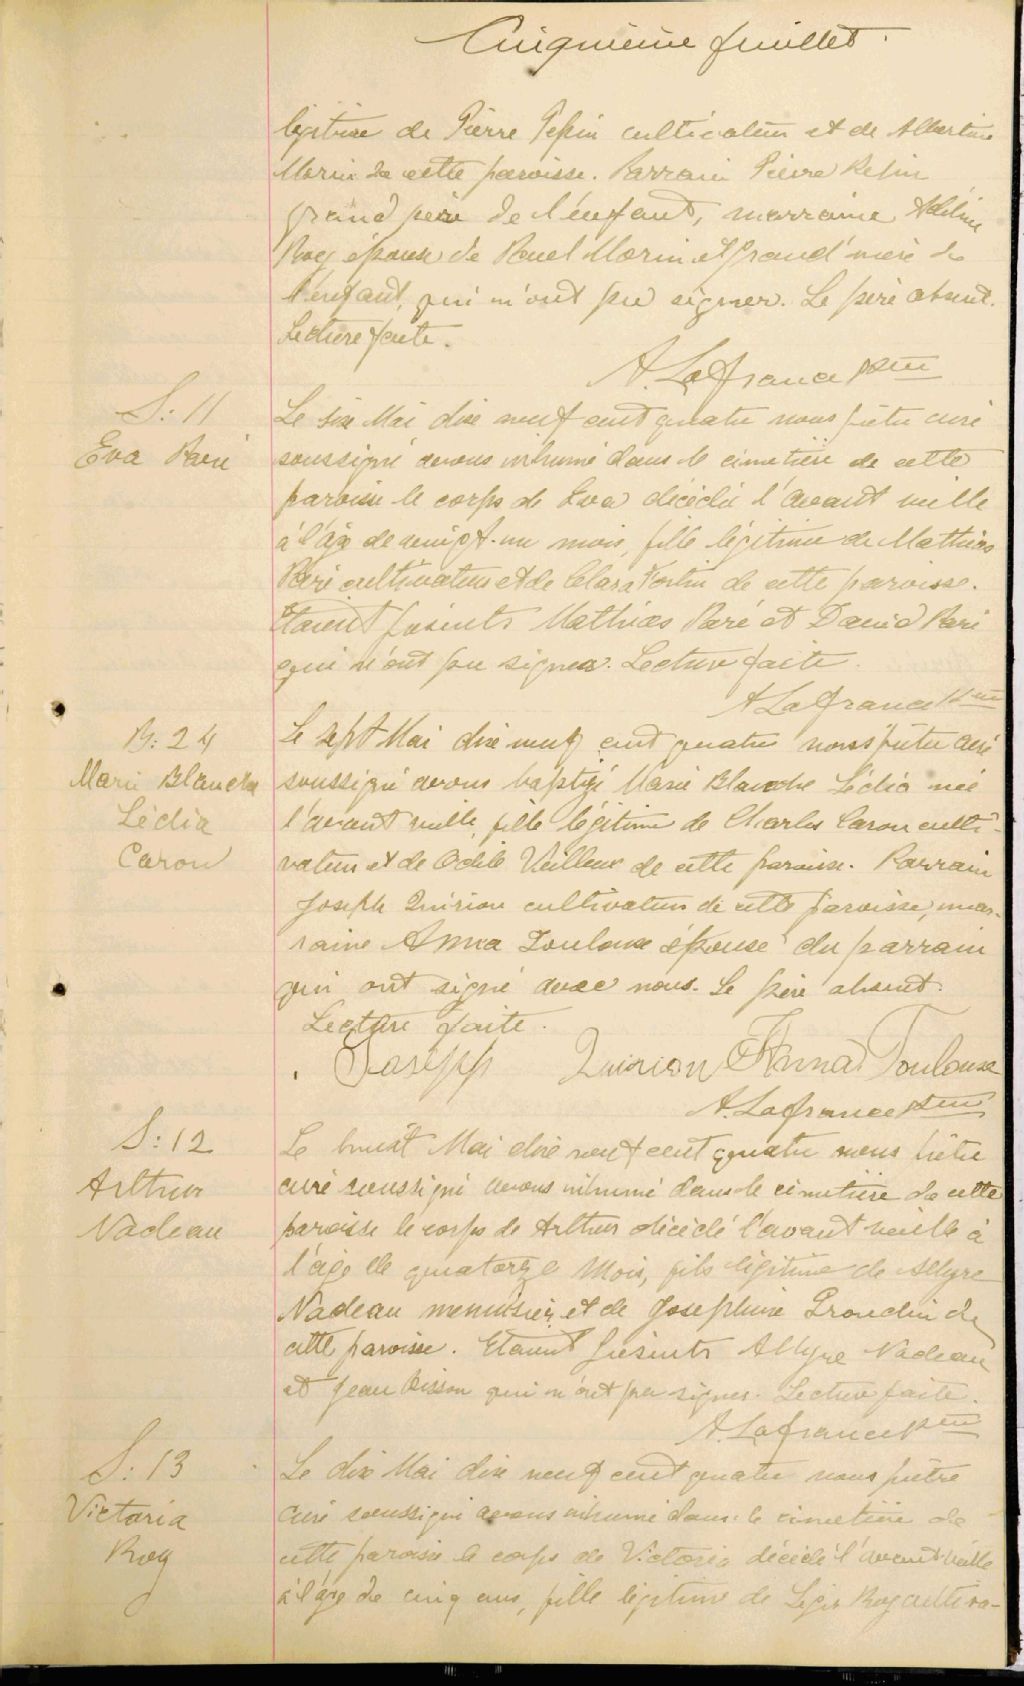 Cinquième feuillet.
légitime de Pierre Pépin cultivateur et de Albertine
Morin de cette paroisse. Parrain Pierre Pépin
grand père de l'enfant, marraine Adéline
Roy épouse de Morin et grand'mère de
l'enfant, qui n'ont pu signer. Le père absent.
Lecture faite.
A. Lafrance ptre
S: 11
Eva Paré
Le six Mai dix neuf cent quatre nous prêtre curé
soussigné avons inhumé dans le cimetière de cette
paroisse le corps de Eva décédée l'avant veille
à l'âge de vingt-un mois, fille légitime de Mathias
Paré cultivateur et de Clara Fortin de cette paroisse.
Etaient présents Mathias Paré et David Paré
qui n'ont pu signer. Lecture faite.
A Lafrance ptre
B: 24
Marie Blanche
Lédia
Caron
Le sept Mai dix neuf cent quatre nous prêtre curé
soussigné avons baptizé Marie Blanche Lédia née
l'avant veille, fille légitime de Charles Caron culti-
vateur et de Odile Veilleux de cette paroisse. Parrain
Joseph Quirion cultivateur de cette paroisse, mar-
raine Anna Toulouse épouse du parrain
qui ont signé avec nous. Le père absent.
Lecture faite.
Joseph Quirion Anna Toulouse
A. Lafrance ptre
S: 12
Arthur
Nadeau
Le huit Mai dix neuf cent quatre nous prêtre
curé soussigné avons inhumé dans le cimetière de cette
paroisse le corps de Arthur décédé l'avant veille à
l'âge de quatorze mois, fils légitime de Allyre
Nadeau menuisier et de Josephine Grondin de
cette paroisse. Etaient présents Allyre Nadeau
et Jean Bisson qui n'ont pu signer. Lecture faite.
A. Lafrance ptre
S: 13
Victoria
Roy
Le dix Mai dix neuf cent quatre nous prêtre
curé soussigné avons inhumé dans le cimetière de
cette paroisse le corps de Victoria décédé l'avant veille
à l'âge de cinq ans, fille légitime de Roy cultiva-